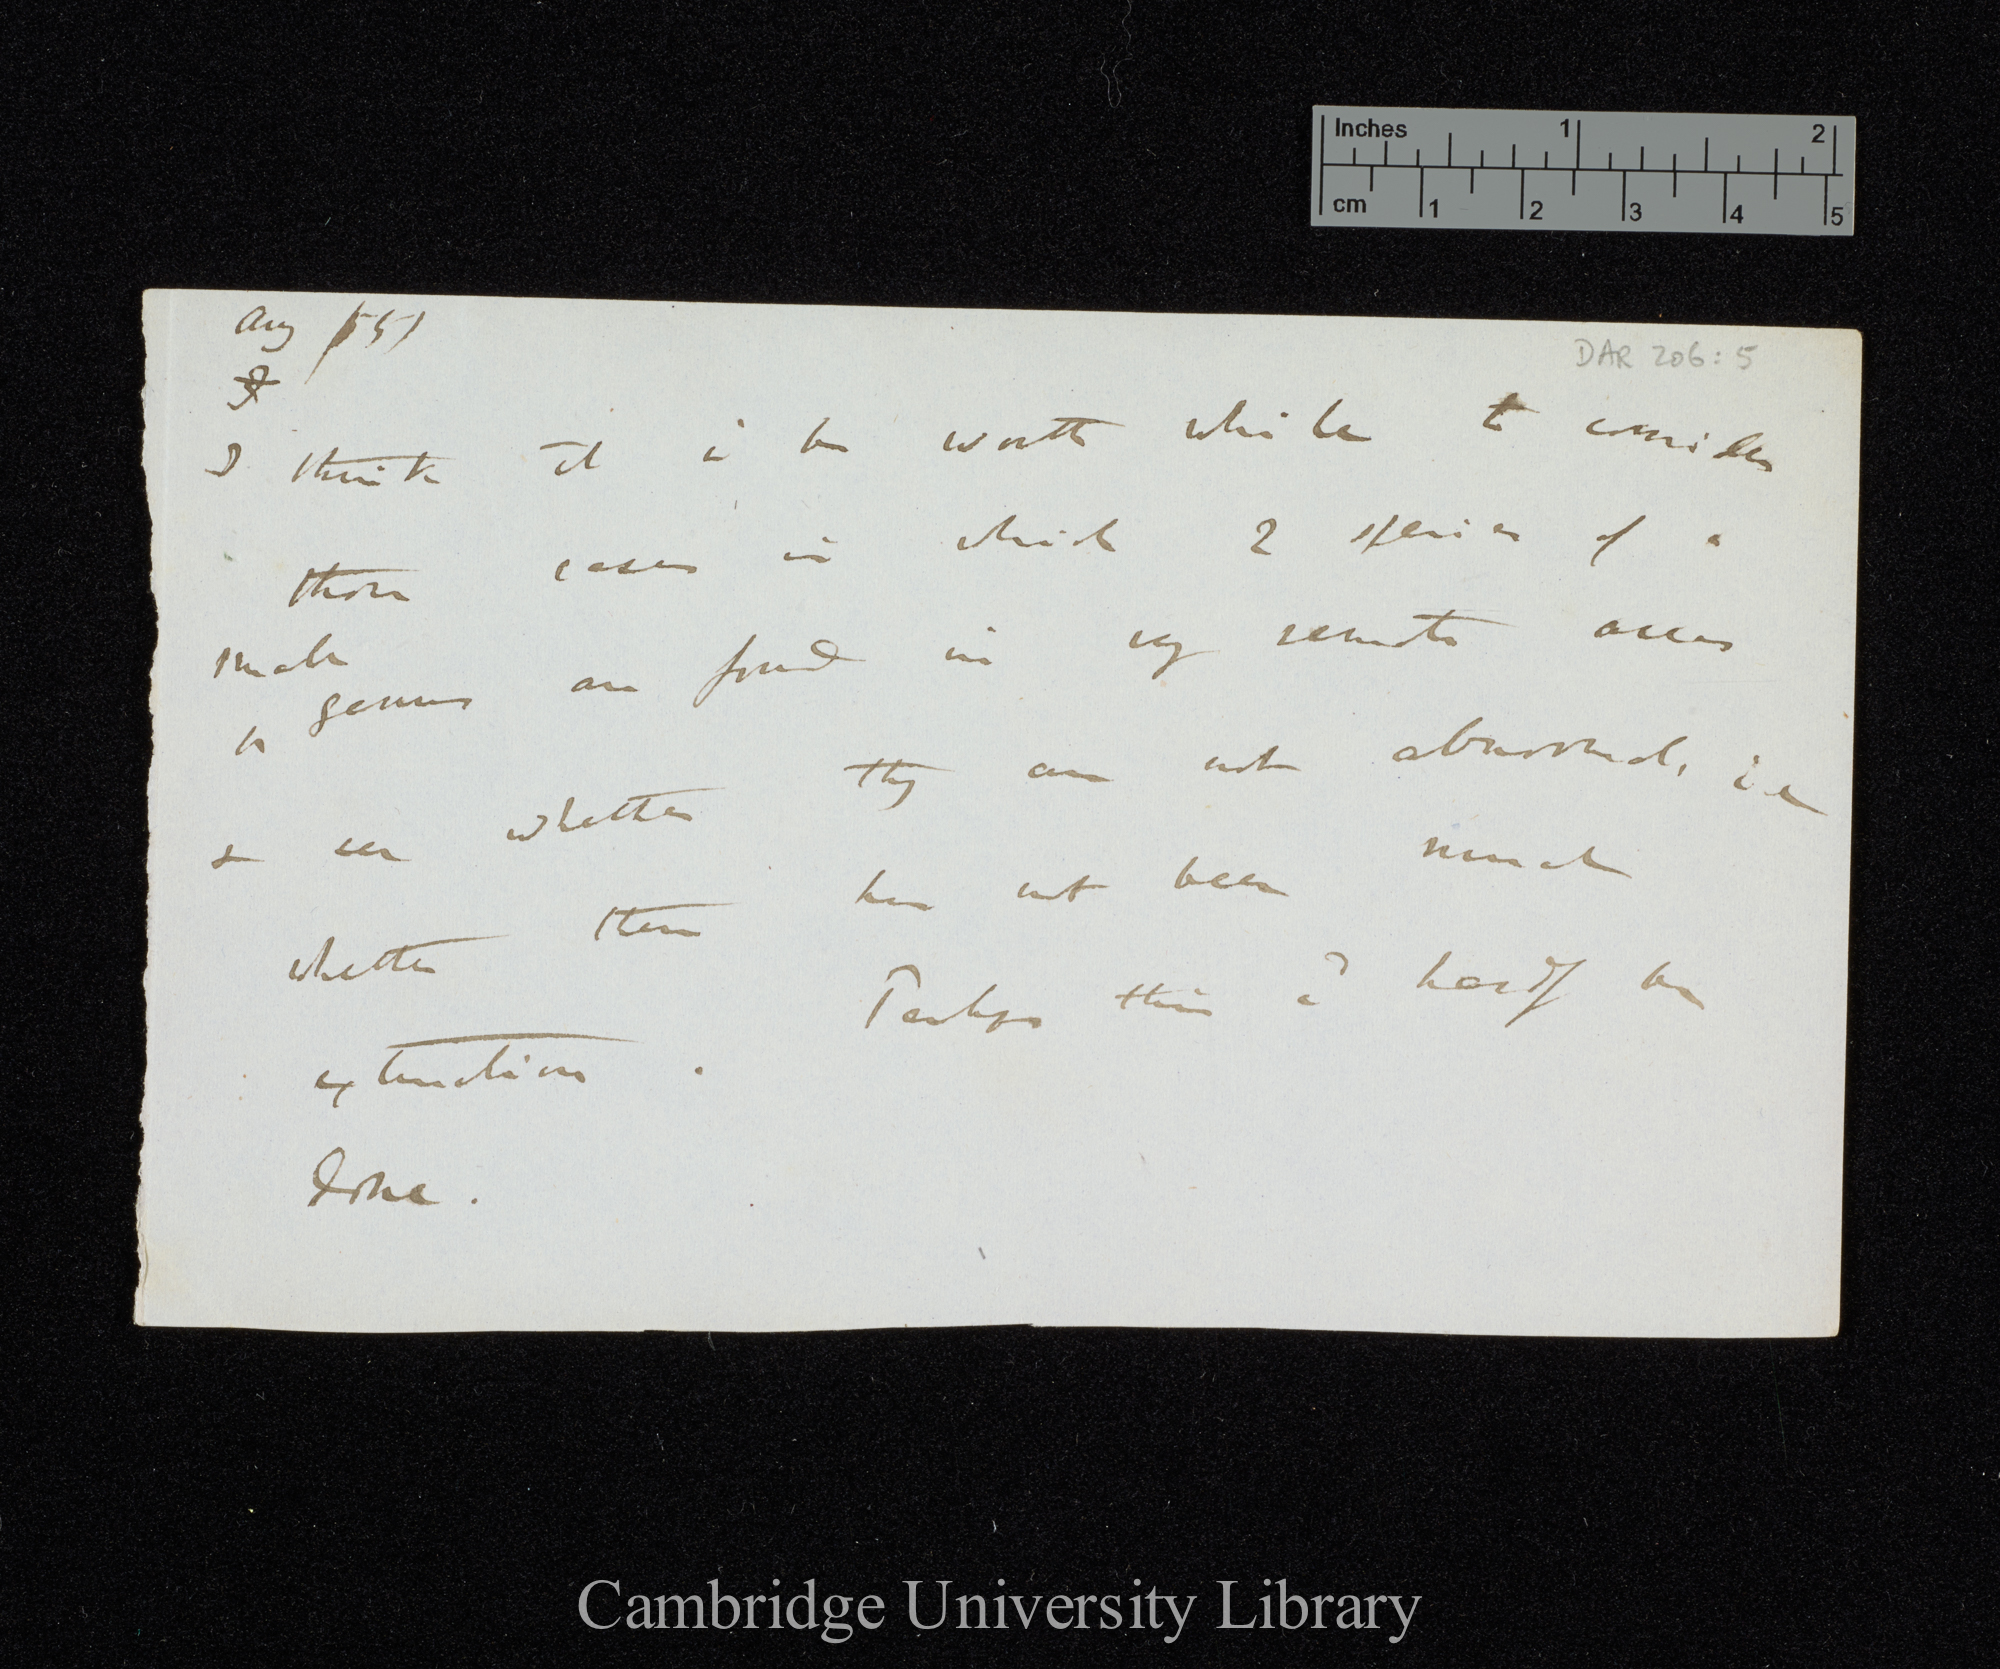 Inches 1 2
cm 1 2 3 4 5
Aug /55/
DAR 206: 5
I think it be worth while to consider
those cases in which 2 species of a
small
genus are found in very remote areas
& see whether they are not abnormal, i e
whether there has not been much
extinction. Perhaps this hardly be
done.
Cambridge University Library